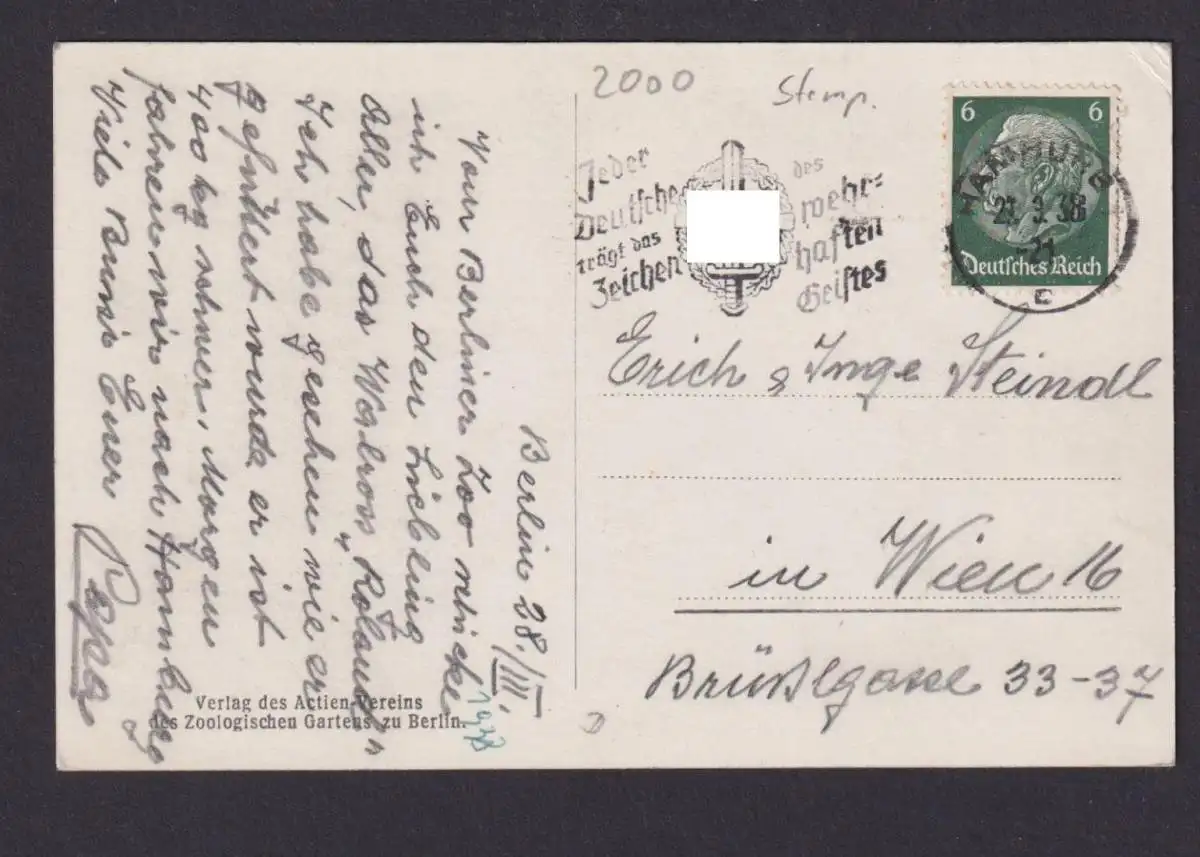 2000
Stemp.
Jeder Deutsche trägt das Zeichen
des wehrhaften Geistes
6 6
HAMBURG
3.38
-21
c
Deutsches Reich
Erich & Inge Steindl
in Wien 16
Brüßlgasse 33-37
Berlin 28./III.
1938
Vom Berliner Zoo schicke
ich Euch den Liebling
aller, das Walross "Roland"
Ich habe gesehen wie er
gefüttert wurde er ist
400 kg schwer. Morgen
fahren wir nach Hamburg
Viele Bussi Euer
Papa
Verlag des Actien-Vereins
des Zoologischen Gartens zu Berlin.